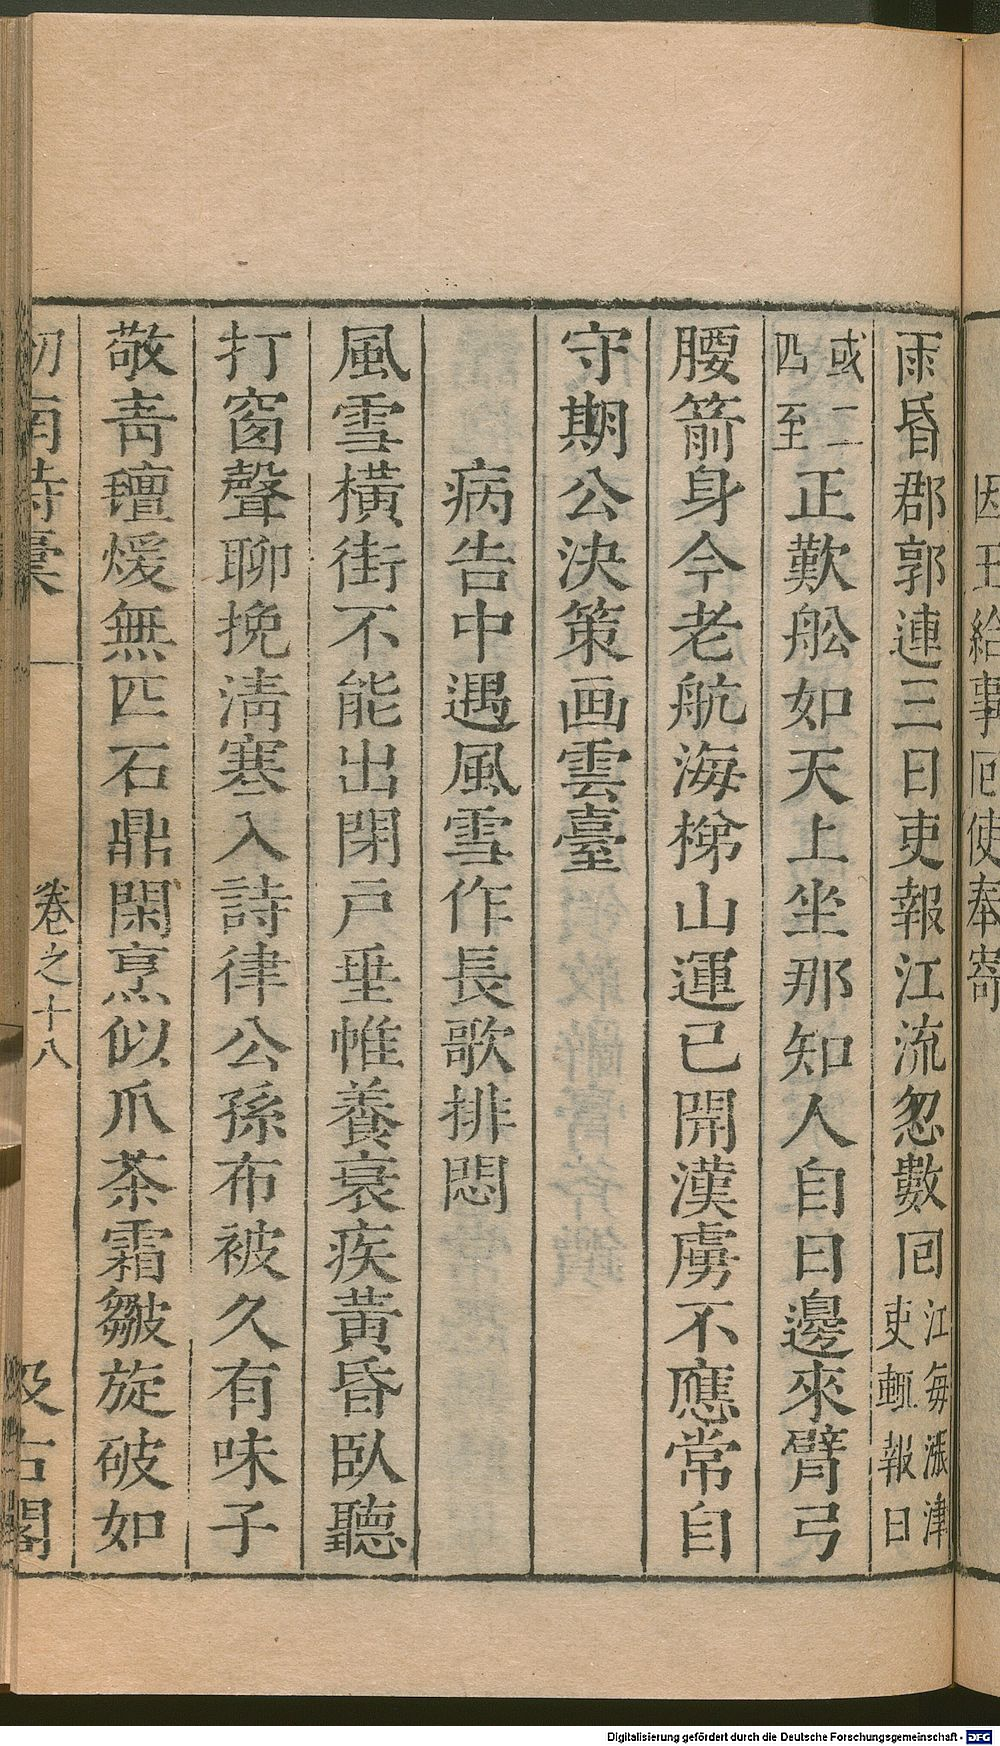 因王給事囘使奉寄
雨昏郡郭連三日吏報江流忽數囘江每漲津吏輒報曰
或二四至正歎舩如天上坐那知人自日邊來臂弓
腰箭身今老航海梯山運已開漢虜不應常自
守期公決策画雲臺
病告中遇風雪作長歌排悶
風雪橫街不能出閉戸垂帷養衰疾黃昏臥聽
打窗聲聊挽淸寒入詩律公孫布被久有味子
敬靑氊煖無匹石鼎閑烹似爪茶霜皺旋破如
劒南詩稾 卷之十八 汲古閣
Digitalisierung gefördert durch die Deutsche Forschungsgemeinschaft - DFG